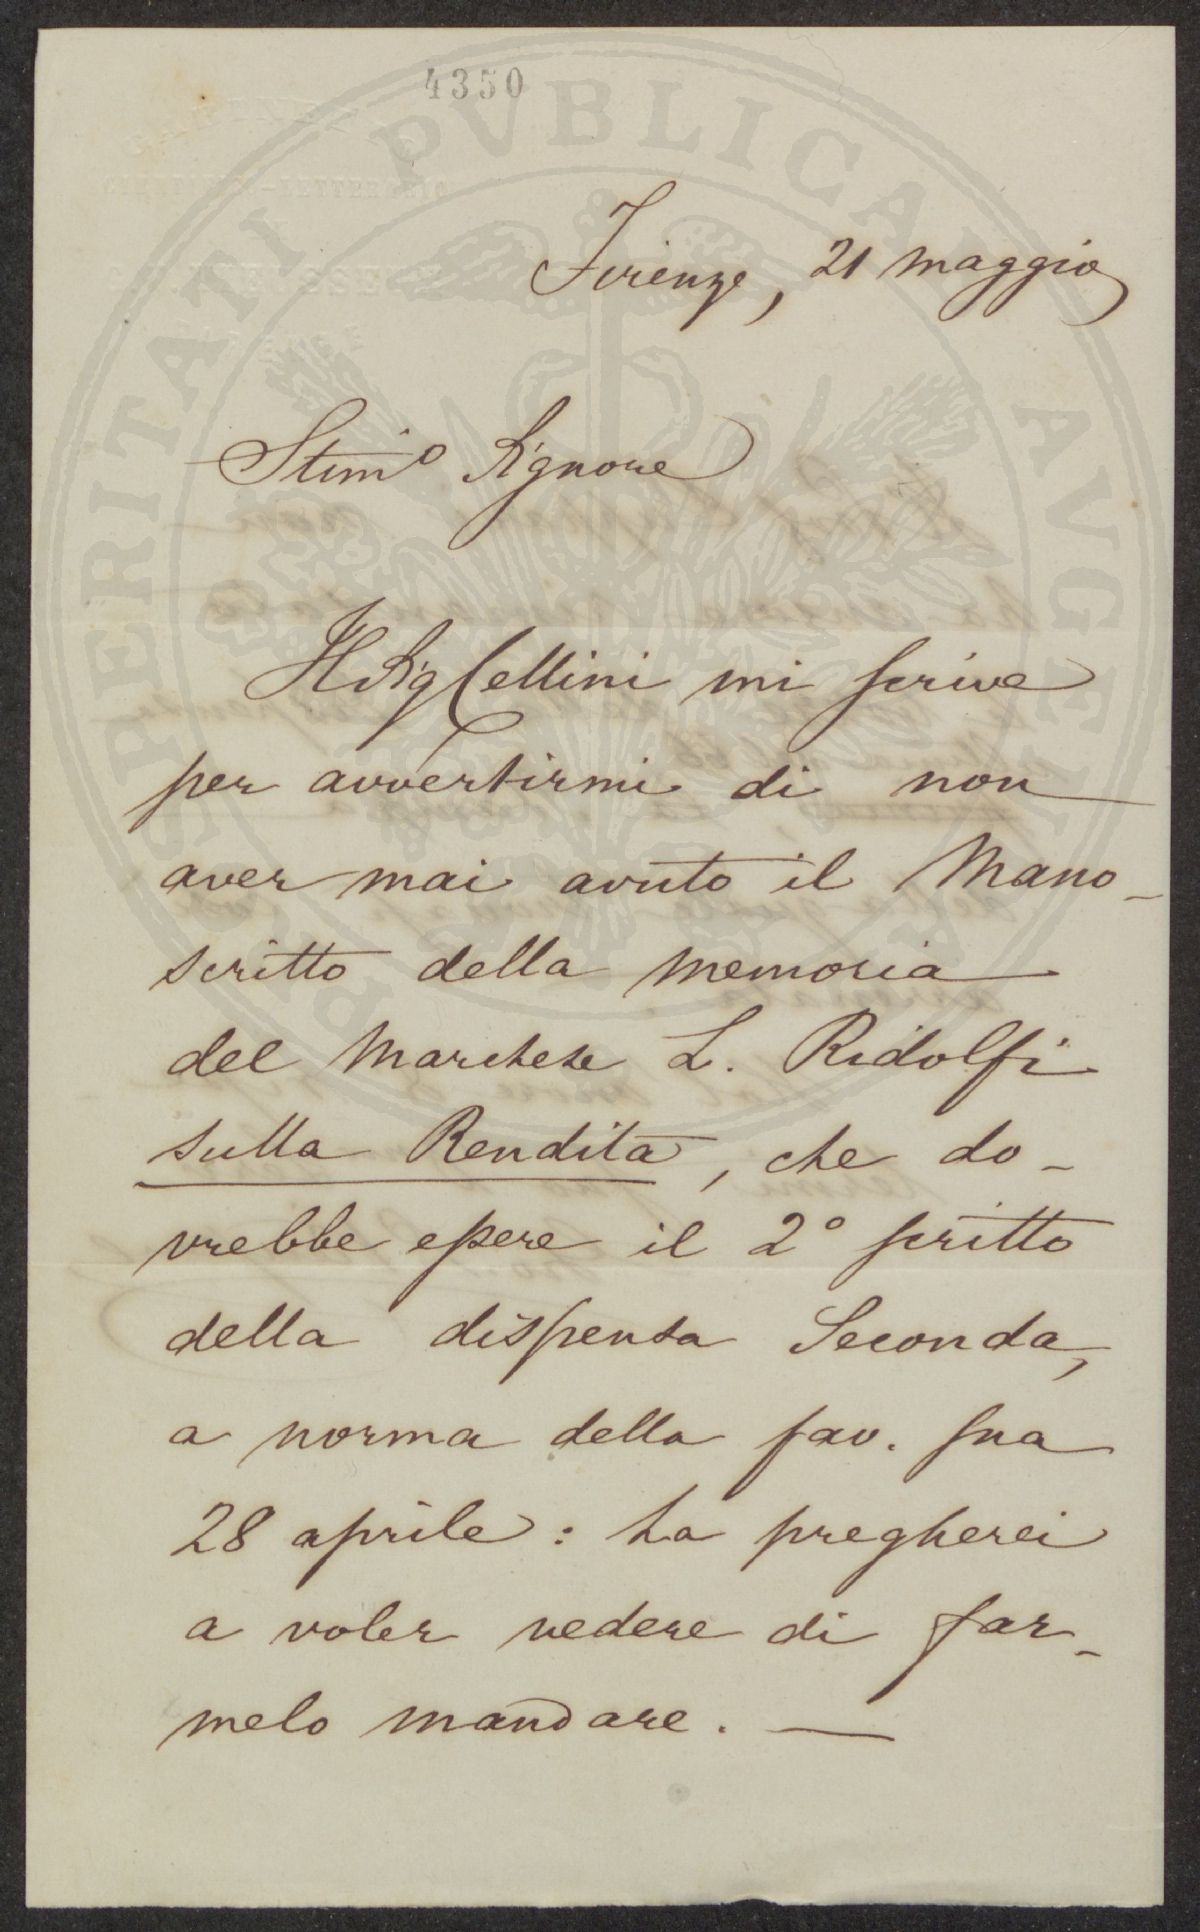 4350
PROSPERITATI PVBLICAE AVGENDAE
Firenze, 21 maggio
Stimo Signore
Il Sig Cellini mi scrive
per avvertirmi di non
aver mai avuto il Mano-
scritto della memoria
del Marchese L. Ridolfi
sulla Rendita, che do-
vrebbe essere il 2° scritto
della dispensa Seconda,
a norma della fav. sua
28 aprile: La pregherei
a voler vedere di far-
melo mandare. —